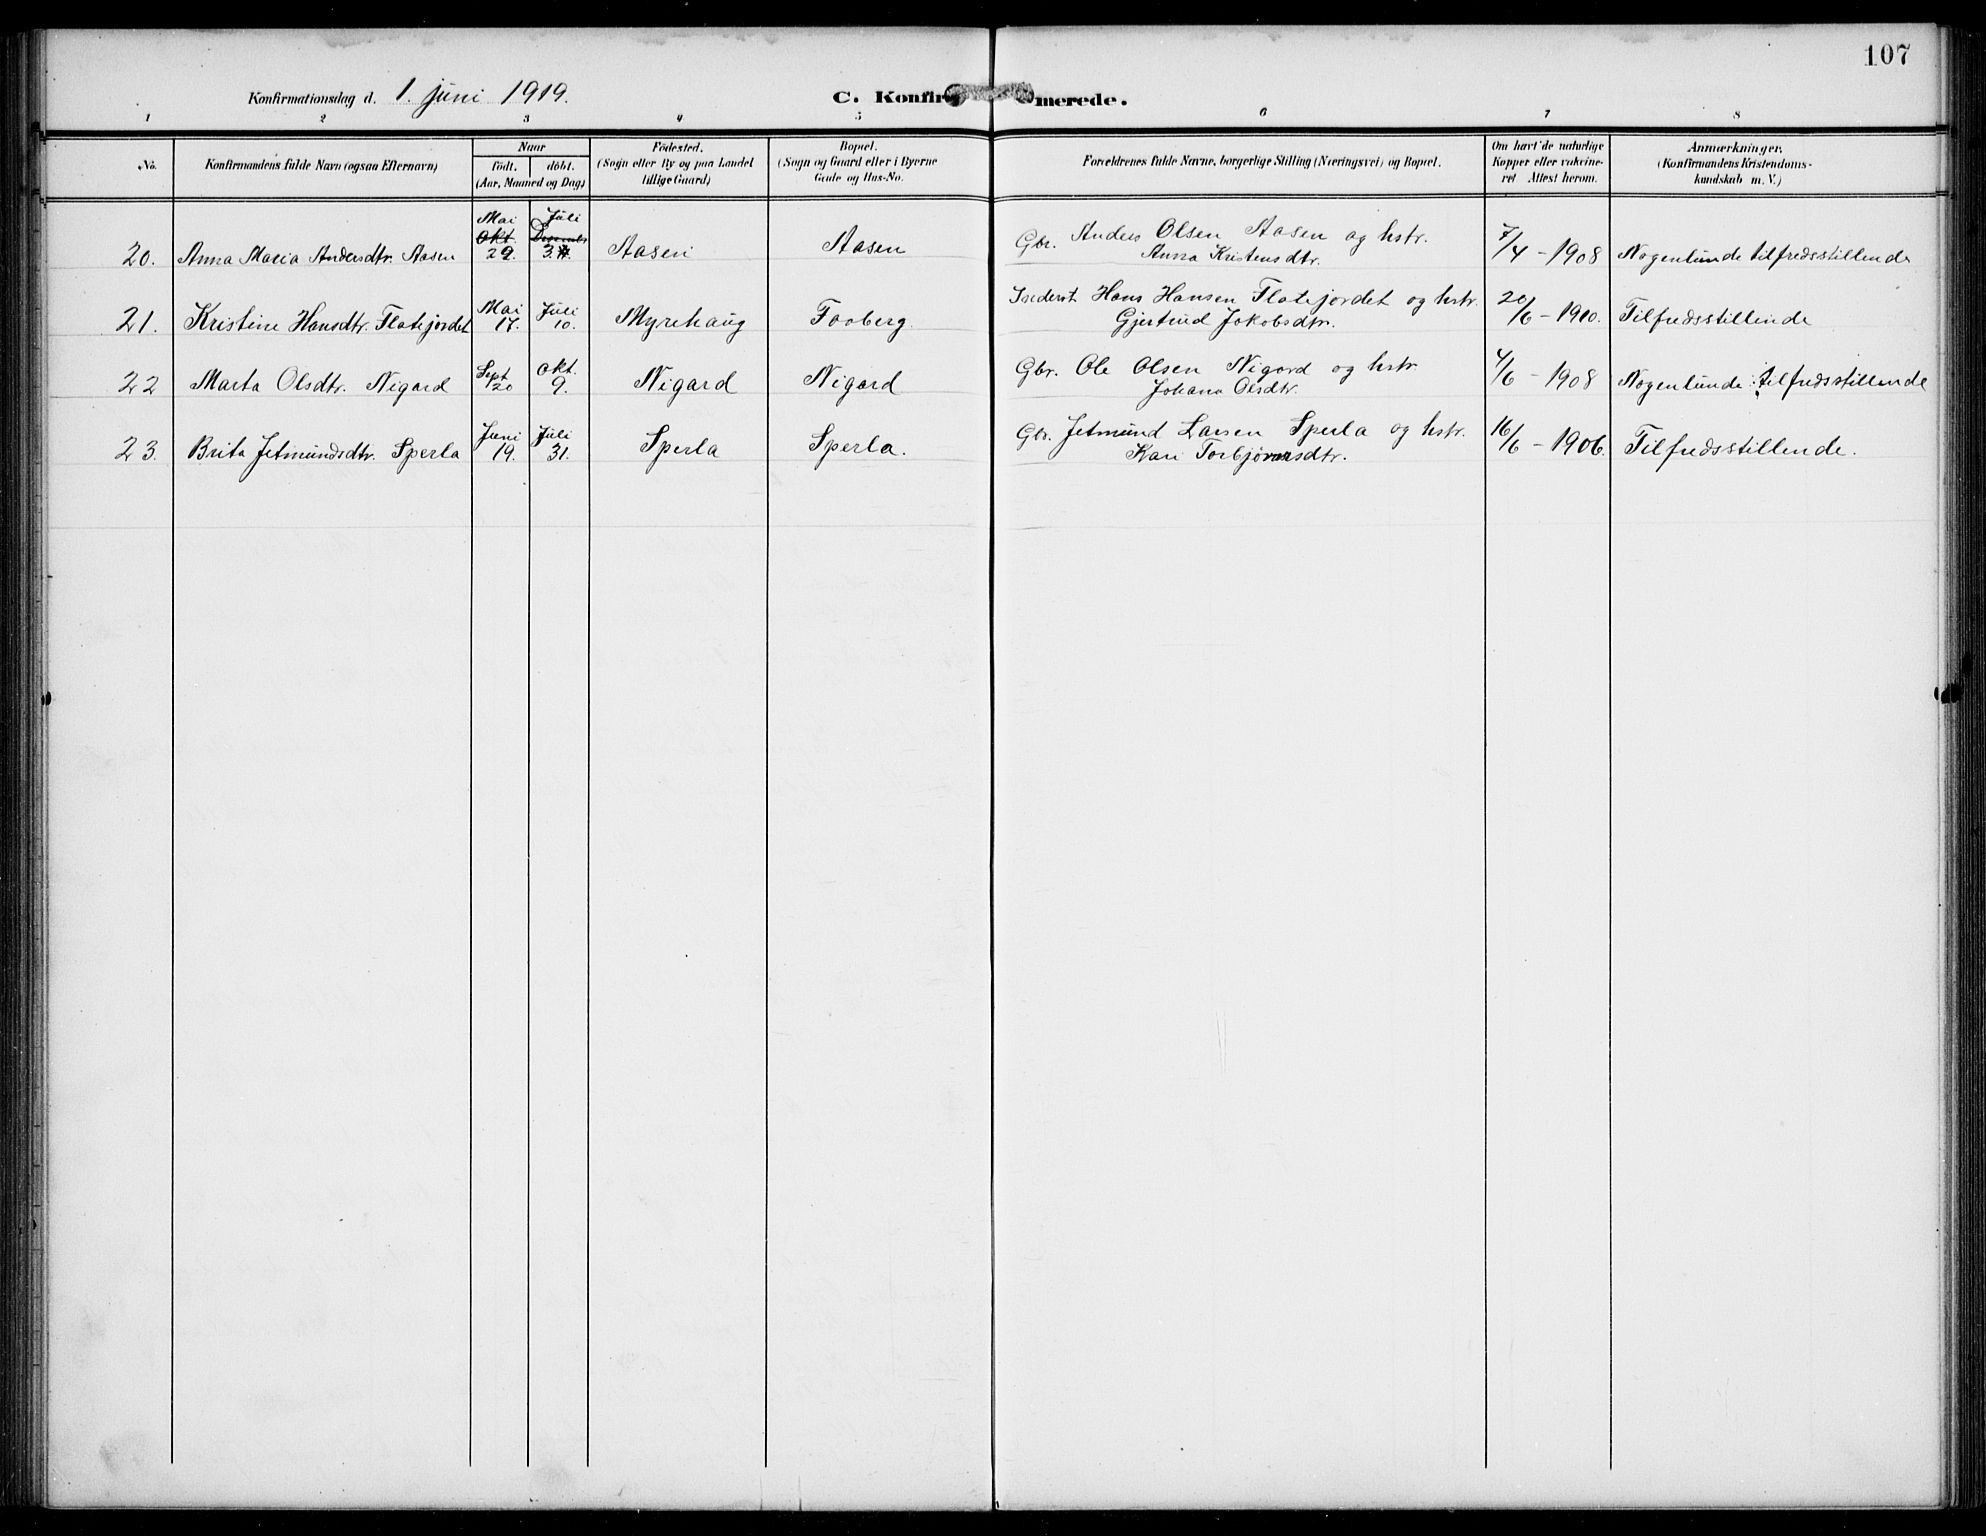 107
Konfirmationsdag d. 1. juni 1919. C. Konfir merede.
1 2 3 4 5 6 7 8
No. Konfirmandens fulde Navn (ogsaa Efternavn) Naar født. døbt. (Aar, Maaned og Dag) Fødested. (Sogn eller By og paa Landet tillige Gaard) Bopæl. (Sogn og Gaard eller i Byerne Gade og Hus-No. Forældrenes fulde Navne, borgerlige Stilling (Næringsvei) og Bopæl. Om havt de naturlige Kopper eller vakcineret Attest herom. Anmærkninger. (Konfirmandens Kristendomskundskab m. V.)
Mai Juli
Okt. Decemb.
20. Anna Maria Andersdtr. Aasen 29. 3. Aasen Aasen Gbr. Anders Olsen Aasen og hstr. 7/4 - 1908 Nogenlunde tilfredsstillende
Anna Kristensdtr.
21. Kristine Hansdtr. Flatejordet Mai 17. Juli 10. Myrehaug Faaberg. Hans Hansen Flatejordet og hstr. 20/6 - 1910. Tilfredsstillende
Gjertrud Jakobsdtr.
22 Marta Olsdtr. Nigard Sept 20 Okt. 9. Nigard Nigard Gbr. Ole Olsen Nigard og hstr. 4/6 - 1908 Nogenlunde tilfredsstillende
Johana Olsdtr.
23. Brita Jetmundsdtr. Sperla Juni 19. Juli 31. Sperla Sperla. Gbr. Jetmund Larsen Sperla og hstr. 16/6 - 1906. Tilfredsstillende.
Kari Torbjørnsdtr.